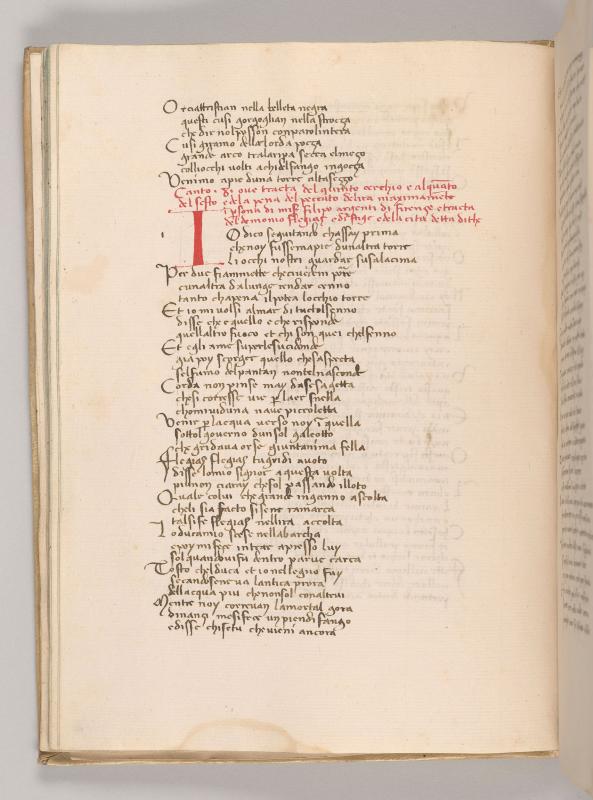 Or ciattristian nella belleta negra
questi cusi gorgoglian nella strocza
che dir nol posson con parol intera
Cusi giramo della lorda pocza
grande arco tra la ripa secca el mezo
colliocchi volti a chi del fango ingocza
Venimo a pie duna torre al tasezzo
Canto · 8 · ove tracta del quinto cerchio e alquāto
del sesto e dela pena del peccato delira maximamēte
in psona di misẽ filipo argenti di firenze e tracta
del demonio flegias e de stige e dela cita detta dithe
IO dico sequitando chassay prima
che noy fussemapie dunaltra torre
li occhi nostri guardar suso alacima
Per due fiammette che ci viden porre
e unaltra dalunge rendar cenno
tanto chapena il potea locchio torre
Et io mi volsi al mar di tuctol senno
disse che e quello e che risponde
quellaltro fuoco et chi son quei chel fenno
Et egli a me super le sucide onde
gia poy scorger quello che saspecta
sel fumo del pantan nontel nasconde
Corda non pinse may da se sagetta
che si coresse vie p laer snella
chomividuna nave piccoletta
Venir p lacqua verso noy ī quella
sottol governo dun sol galeotto
che gridava or se giuntanima fella
Flegias flegias tu gridi a voto
disse lomio signior a questa volta
piu non ci aray che sol passando illoto
Quale colui che grande inganno ascolta
cheli sia facto si sene ramarca
tal si fe flegias nellira accolta
Lo duca mio sciese nella barcha
e poy mi fece intrar apresso luy
sol quandovifu dentro parve carca
Tosto chel duca et io nel legno fuy
secando seneva lantica prora
dellacqua piu che non sol con altrui
Mentre noy correvan la mortal gora
dinanzi mesifece un pien di fango
e disse chi setu che vieni anzi ora